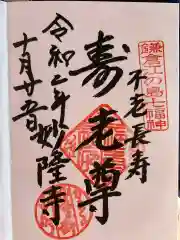 鎌倉江の島七福神
不老長寿
寿老尊
令和二年
十月廿五日
妙隆寺